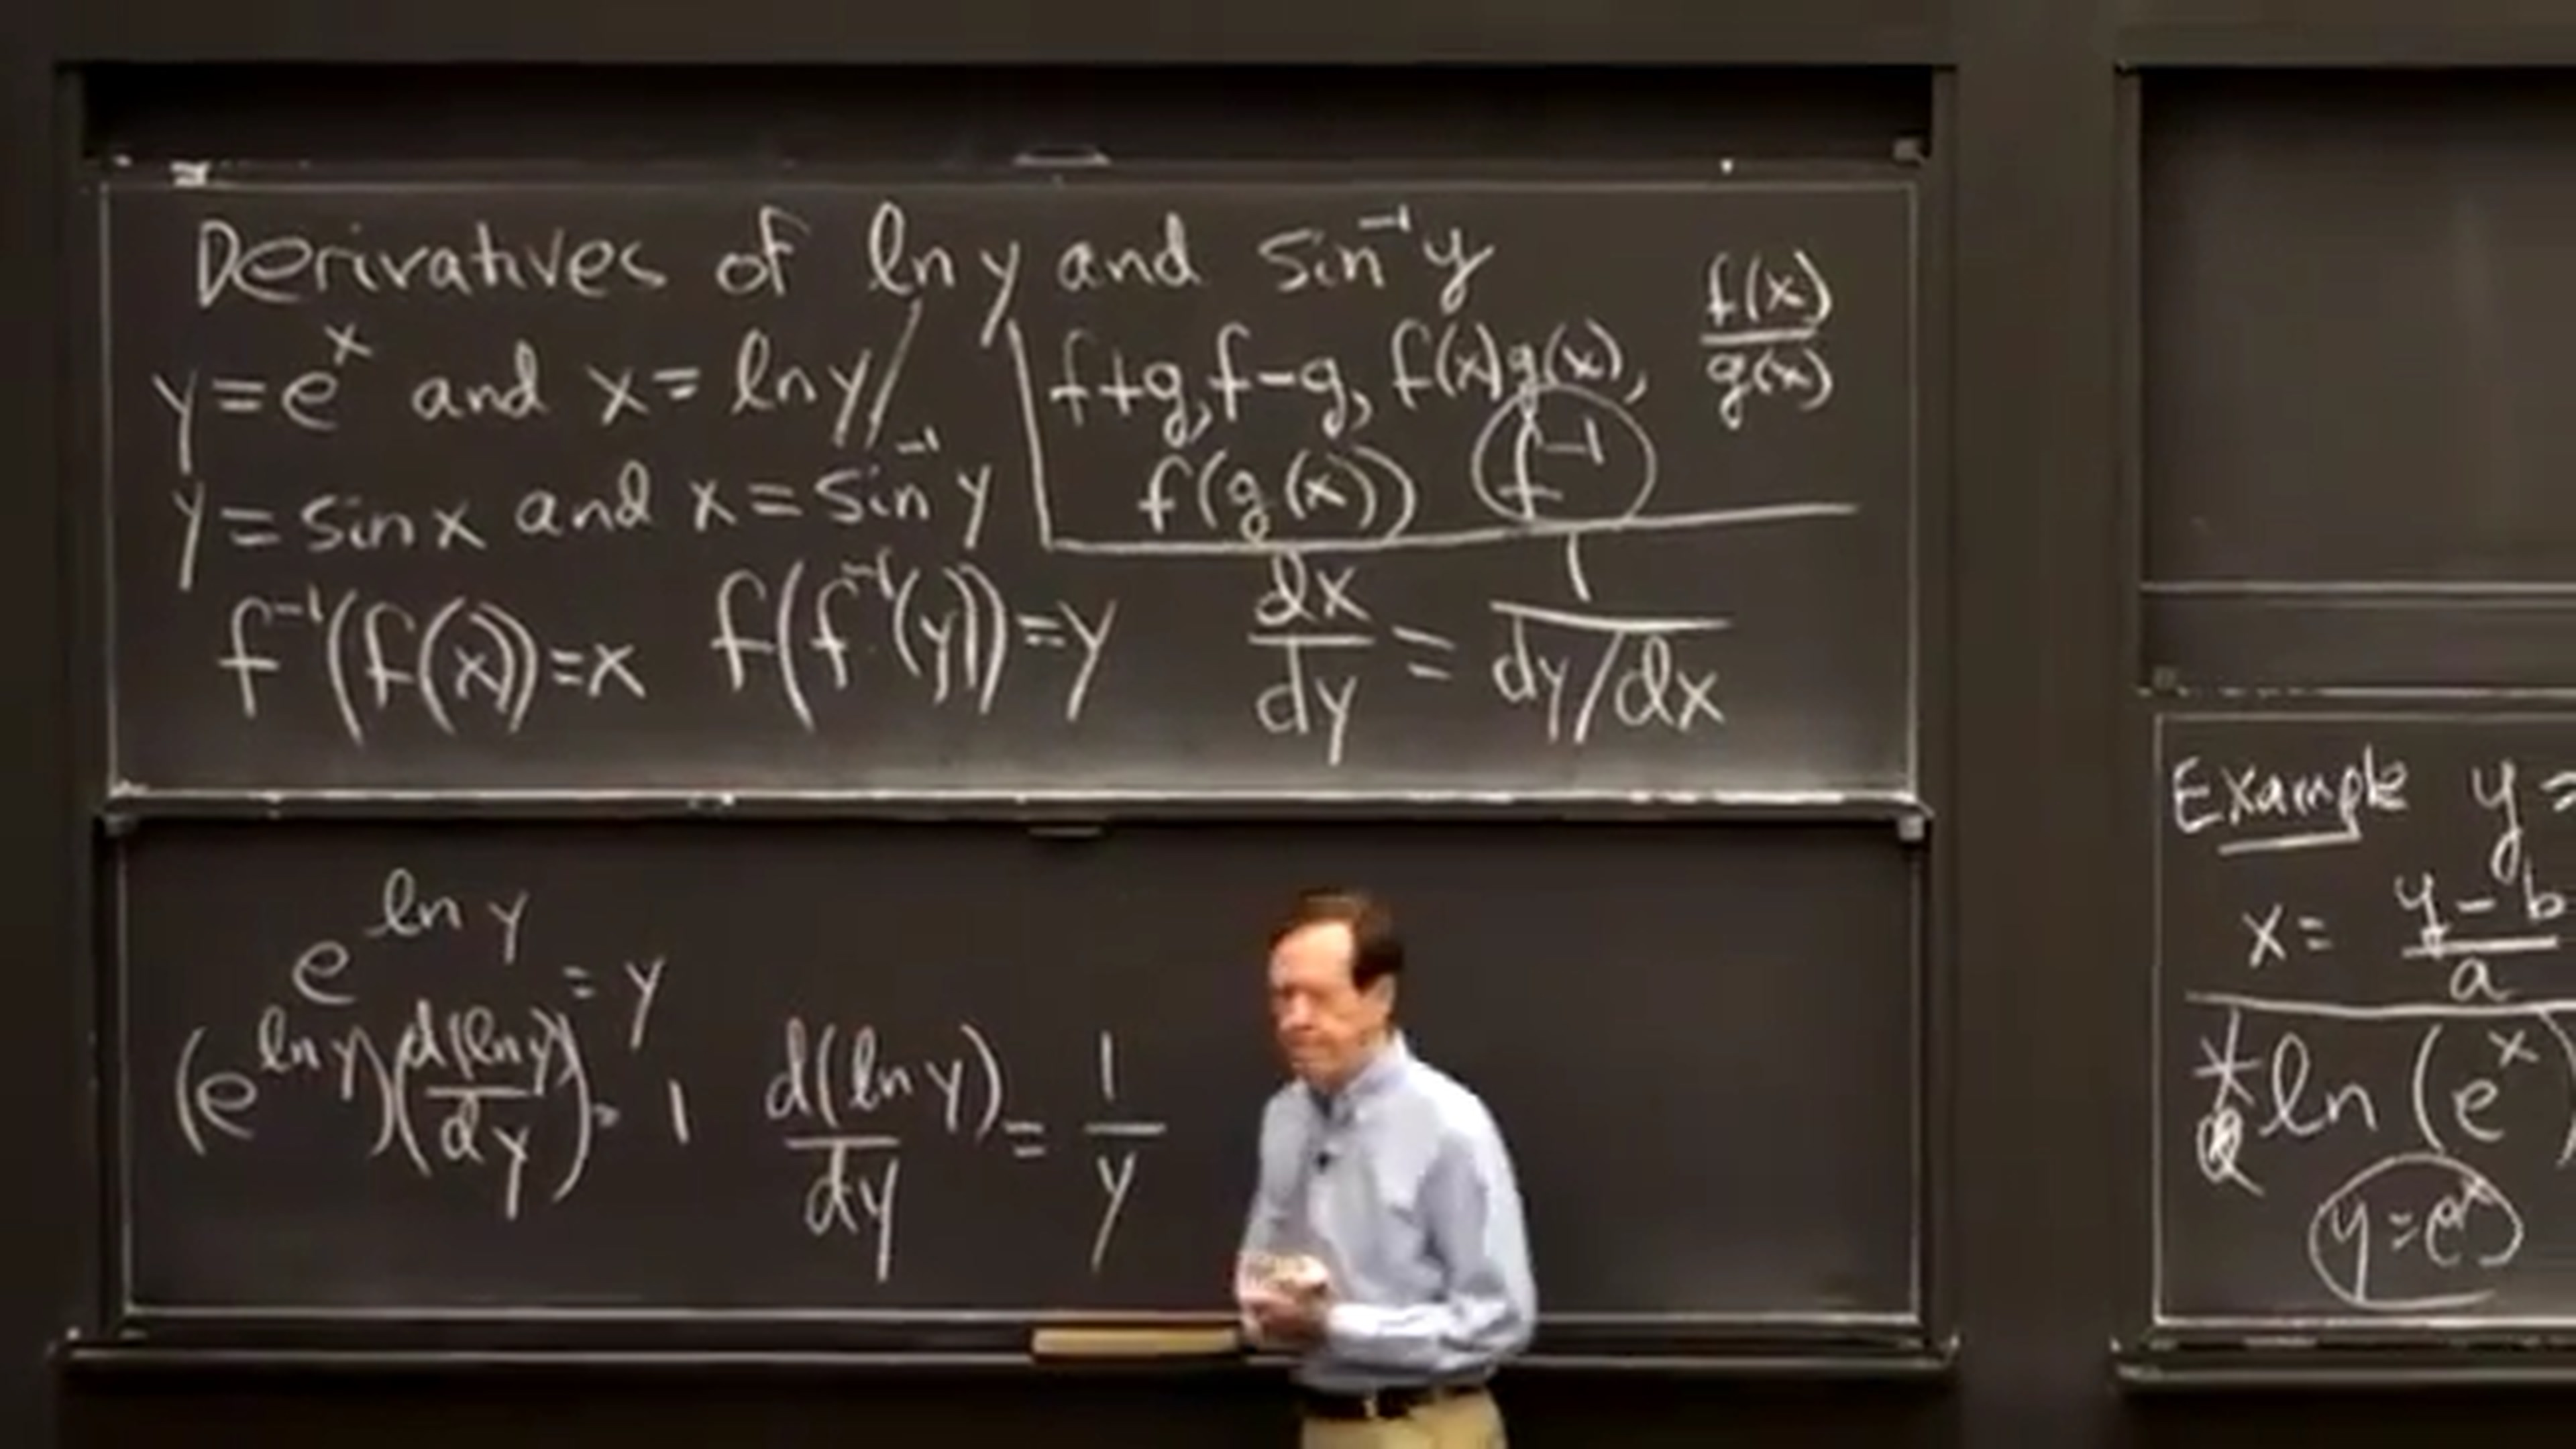 Derivatives of ln y and sin⁻¹ y
y = eˣ and x = ln y
y = sin x and x = sin⁻¹ y
f+g, f-g, f(x)g(x), f(x)/g(x)
f(g(x)) f⁻¹
f⁻¹(f(x)) = x f(f⁻¹(y)) = y dx/dy = 1/(dy/dx)
e^(ln y) = y
(e^(ln y))(d(ln y)/dy) = 1 d(ln y)/dy = 1/y
Example y =
x = (y - b)/a
* ln (eˣ)
y = eˣ